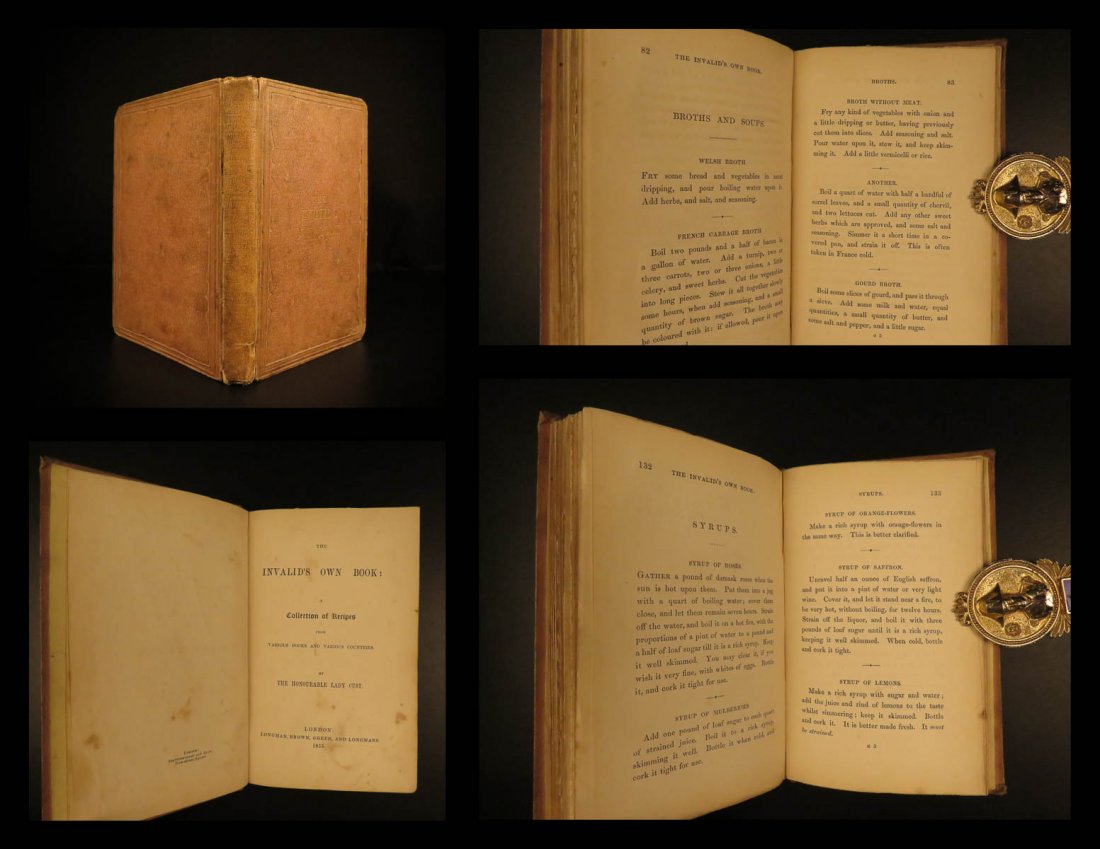 82
THE INVALID'S OWN BOOK.
BROTHS AND SOUPS.
WELSH BROTH.
FRY some bread and vegetables in some
dripping, and pour boiling water upon it.
Add herbs, and salt, and seasoning.
FRENCH CABBAGE BROTH
Boil two pounds and a half of bacon in
a gallon of water. Add a turnip, two or
three carrots, two or three onions, a little
celery, and sweet herbs. Cut the vegetables
into long pieces. Stew it all together slowly
some hours, when add seasoning, and a small
quantity of brown sugar. The broth may
be coloured with it: if allowed, pour it upon
BROTHS.
83
BROTH WITHOUT MEAT.
Fry any kind of vegetables with onion and
a little dripping or butter, having previously
cut them into slices. Add seasoning and salt.
Pour water upon it, stew it, and keep skim-
ming it. Add a little vermicelli or rice.
ANOTHER.
Boil a quart of water with half a handful of
sorrel leaves, and a small quantity of chervil,
and two lettuces cut. Add any other sweet
herbs which are approved, and some salt and
seasoning. Simmer it a short time in a co-
vered pan, and strain it off. This is often
taken in France cold.
GOURD BROTH.
Boil some slices of gourd, and pass it through
a sieve. Add some milk and water, equal
quantities, a small quantity of butter, and
some salt and pepper, and a little sugar.
G 2
THE
INVALID'S OWN BOOK:
A
Collection of Recipes
FROM
VARIOUS BOOKS AND VARIOUS COUNTRIES.
BY
THE HONOURABLE LADY CUST.
LONDON:
LONGMAN, BROWN, GREEN, AND LONGMANS.
1853.
132
THE INVALID'S OWN BOOK.
SYRUPS.
SYRUP OF ROSES.
GATHER a pound of damask roses when the
sun is hot upon them. Put them into a jug
with a quart of boiling water; cover them
close, and let them remain seven hours. Strain
off the water, and boil it on a hot fire, with the
proportions of a pint of water to a pound and
a half of loaf sugar till it is a rich syrup. Keep
it well skimmed. You may clear it, if you
wish it very fine, with whites of eggs. Bottle
it, and cork it tight for use.
SYRUP OF MULBERRIES.
Add one pound of loaf sugar to each quart
of strained juice. Boil it to a rich syrup,
skimming it well. Bottle it when cold, and
cork it tight for use.
SYRUPS.
133
SYRUP OF ORANGE-FLOWERS.
Make a rich syrup with orange-flowers in
the same way. This is better clarified.
SYRUP OF SAFFRON.
Unravel half an ounce of English saffron,
and put it into a pint of water or very light
wine. Cover it, and let it stand near a fire, to
be very hot, without boiling, for twelve hours.
Strain off the liquor, and boil it with three
pounds of loaf sugar until it is a rich syrup,
keeping it well skimmed. When cold, bottle
and cork it tight.
SYRUP OF LEMONS.
Make a rich syrup with sugar and water;
add the juice and rind of lemons to the taste
whilst simmering; keep it skimmed. Bottle
and cork it. It is better made fresh. It must
be strained.